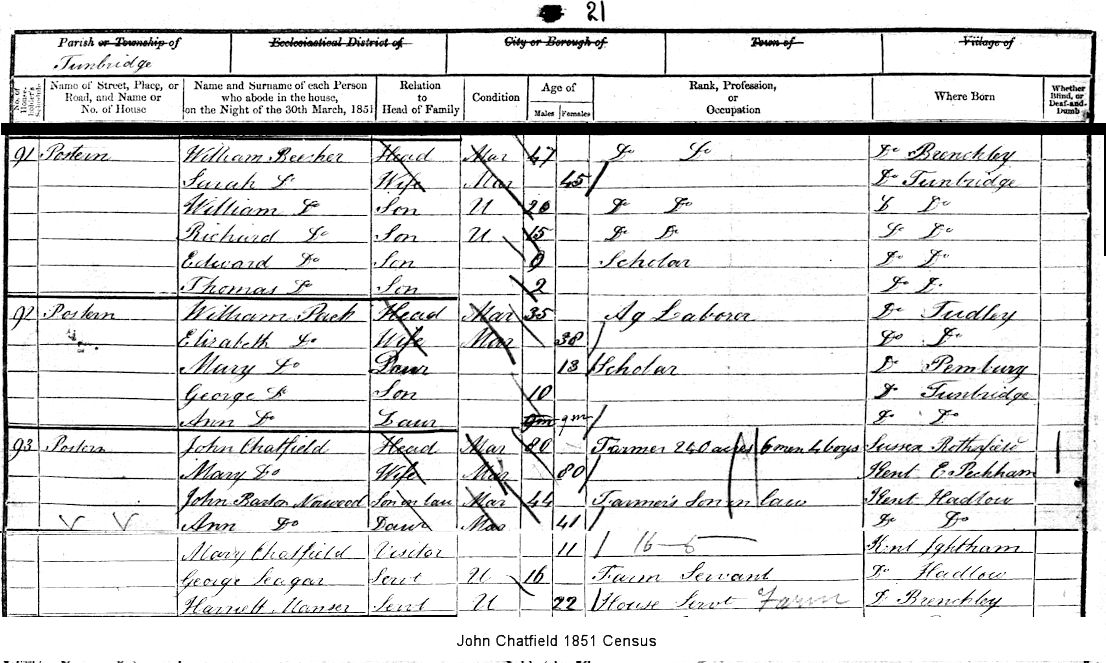 21
Parish or Township of Ecclesiastical District of City or Borough of Town of Village of
Tunbridge
No. of Householder's Schedule Name of Street, Place, or Road, and Name or No. of House Name and Surname of each Person who abode in the house, on the Night of the 30th March, 1851 Relation to Head of Family Condition Age of Males Females Rank, Profession, or Occupation Where Born Whether Blind, or Deaf-and-Dumb
91 Postern William Beecher Head Mar 47 Do Do Do Brenchley
Sarah Do Wife Mar 45 Do Tunbridge
William Do Son U 20 Do Do Do Do
Richard Do Son U 15 Do Do Do Do
Edward Do Son Scholar Do Do
Thomas Do Son 2 Do Do
92 Postern William Pack Head Mar 35 Ag Laborer Do Tudley
Elizabeth Do Wife Mar 38 Do Do
Mary Do Daur 13 Scholar Do Pembury
George Do Son 10 Do Tunbridge
Ann Do Daur 9m 9m Do Do
93 Postern John Chatfield Head Mar 80 Farmer 240 acres 6 men 4 boys Sussex Rotherfield
Mary Do Wife Mar 80 Kent E Peckham
John Barton Norwood Son in law Mar 44 Farmer's Son in law Kent Hadlow
Ann Do Daur Mar 41 Do Do
Mary Chatfield Visitor 11 Kent Ightham
George Seagar Servt U 16 Farm Servant Do Hadlow
Harriett Manser Servt U 22 House Servt Farm Do Brenchley
John Chatfield 1851 Census